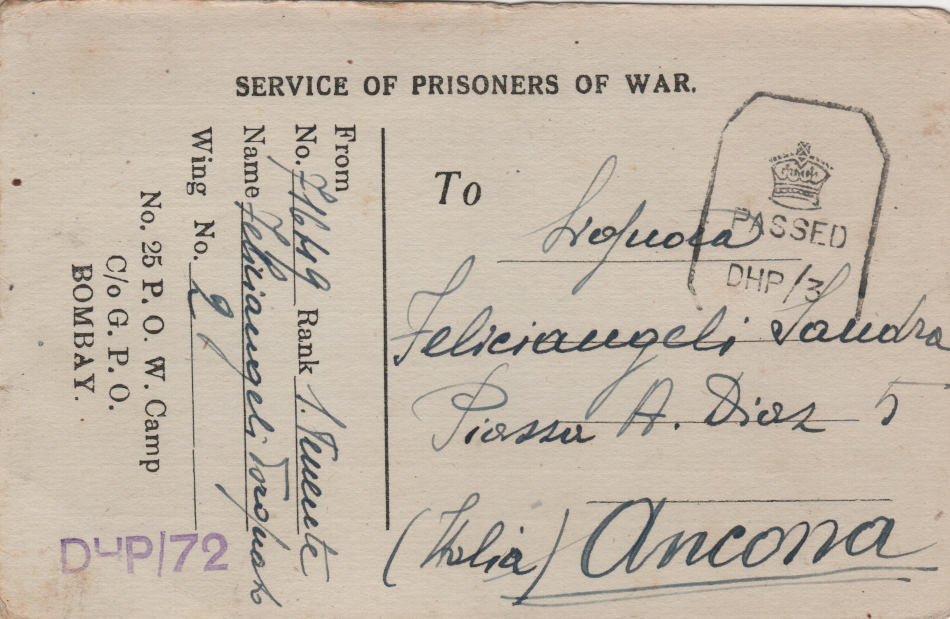 SERVICE OF PRISONERS OF WAR.
To
Signora
Feliciangeli Sandra
Piazza A. Diaz 5
(Italia) Ancona
PASSED
DHP/3
From
No. Rank S. Tenente
Name Feliciangeli Torquato
Wing No. 2
No. 25 P. O. W. Camp
C/o G. P. O.
BOMBAY.
DHP/72